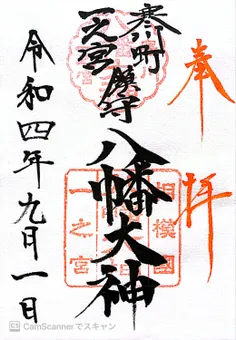 奉拝
寒川町
一之宮 鎮守
八幡大神
令和四年九月一日
相模國
一之宮
CS CamScannerでスキャン